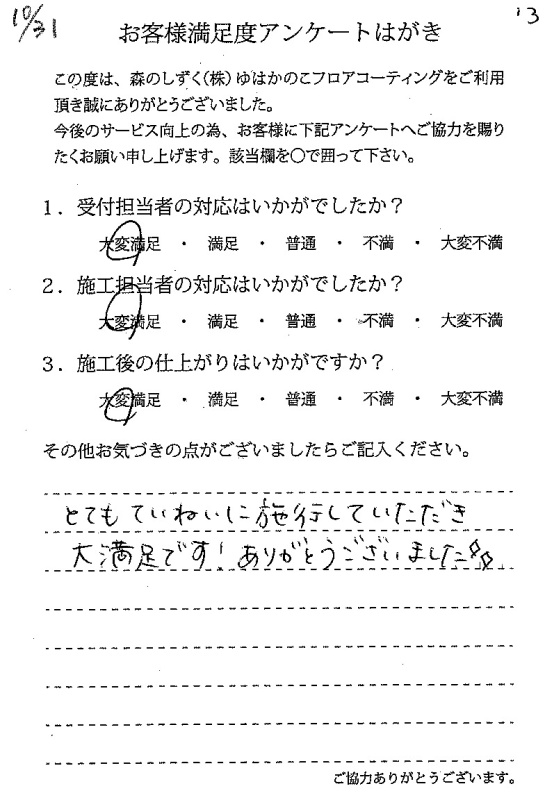 10/31
'13
お客様満足度アンケートはがき
この度は、森のしずく(株)ゆはかのこフロアコーティングをご利用
頂き誠にありがとうございました。
今後のサービス向上の為、お客様に下記アンケートへご協力を賜り
たくお願い申し上げます。該当欄を〇で囲って下さい。
1．受付担当者の対応はいかがでしたか？
大変満足 ・ 満足 ・ 普通 ・ 不満 ・ 大変不満
2．施工担当者の対応はいかがでしたか？
大変満足 ・ 満足 ・ 普通 ・ 不満 ・ 大変不満
3．施工後の仕上がりはいかがですか？
大変満足 ・ 満足 ・ 普通 ・ 不満 ・ 大変不満
その他お気づきの点がございましたらご記入ください。
とてもていねいに施行していただき
大満足です！ありがとうございました
ご協力ありがとうございます。